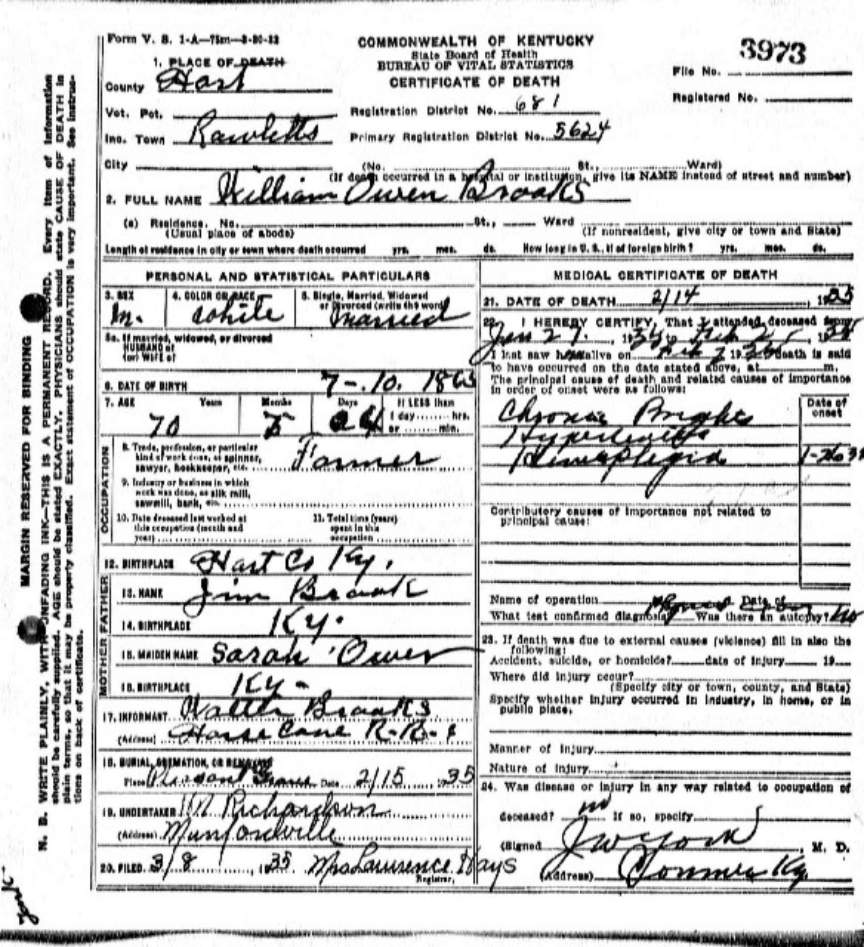 Form V. S. 1-A—75m—3-30-33
COMMONWEALTH OF KENTUCKY
State Board of Health
BUREAU OF VITAL STATISTICS
CERTIFICATE OF DEATH
3973
File No.
Registered No.
1. PLACE OF DEATH
County Hart
Vot. Pct.
Registration District No. 681
Inc. Town Rowletts
Primary Registration District No. 5624
City (No. St., Ward)
(If death occurred in a hospital or institution, give its NAME instead of street and number)
2. FULL NAME William Owen Brooks
(a) Residence. No. St., Ward
(Usual place of abode) (If nonresident, give city or town and State)
Length of residence in city or town where death occurred yrs. mos. ds. How long in U. S., if of foreign birth? yrs. mos. ds.
PERSONAL AND STATISTICAL PARTICULARS
3. SEX 4. COLOR OR RACE 5. Single, Married, Widowed
or Divorced (write the word)
M. White Married
5a. If married, widowed, or divorced
HUSBAND of
(or) WIFE of
6. DATE OF BIRTH 7-10. 1863
7. AGE Years Months Days If LESS than
1 day hrs.
or min.
70
8. Trade, profession, or particular
kind of work done, as spinner,
sawyer, bookkeeper, etc. Farmer
9. Industry or business in which
work was done, as silk mill,
sawmill, bank, etc.
10. Date deceased last worked at
this occupation (month and
year)
11. Total time (years)
spent in this
occupation
OCCUPATION
12. BIRTHPLACE Hart Co Ky.
13. NAME Jim Brook
14. BIRTHPLACE Ky.
15. MAIDEN NAME Sarah Owen
16. BIRTHPLACE Ky-
FATHER
MOTHER
17. INFORMANT Walter Brooks
(Address) Horse Cave R-R-
18. BURIAL, CREMATION, OR REMOVAL
Place Pleasant Grove Date 2/15 1935
19. UNDERTAKER Richardson
(Address) Munfordville
20. FILED 3/8, 1935 Mrs Lawrence Hays
Registrar,
MEDICAL CERTIFICATE OF DEATH
21. DATE OF DEATH 2/14, 1935
22. I HEREBY CERTIFY, That I attended, deceased from
Jan 27, 19 to Feb, 19
I last saw h alive on Feb 7 1935 death is said
to have occurred on the date stated above, at m.
The principal cause of death and related causes of importance
in order of onset were as follows:
Date of
onset
Chronic Brights
Hemiplegia 1-26
Contributory causes of importance not related to
principal cause:
Name of operation Date of
What test confirmed diagnosis? Was there an autopsy? No
23. If death was due to external causes (violence) fill in also the
following:
Accident, suicide, or homicide? date of injury 19
Where did injury occur?
(Specify city or town, county, and State)
Specify whether injury occurred in industry, in home, or in
public place.
Manner of injury
Nature of injury
24. Was disease or injury in any way related to occupation of
deceased? no If so, specify
(Signed J W York, M. D.
(Address) Ky
MARGIN RESERVED FOR BINDING
N. B. WRITE PLAINLY, WITH UNFADING INK—THIS IS A PERMANENT RECORD. Every item of information
should be carefully supplied. AGE should be stated EXACTLY. PHYSICIANS should state CAUSE OF DEATH in
plain terms, so that it may be properly classified. Exact statement of OCCUPATION is very important. See instruc-
tions on back of certificate.
York